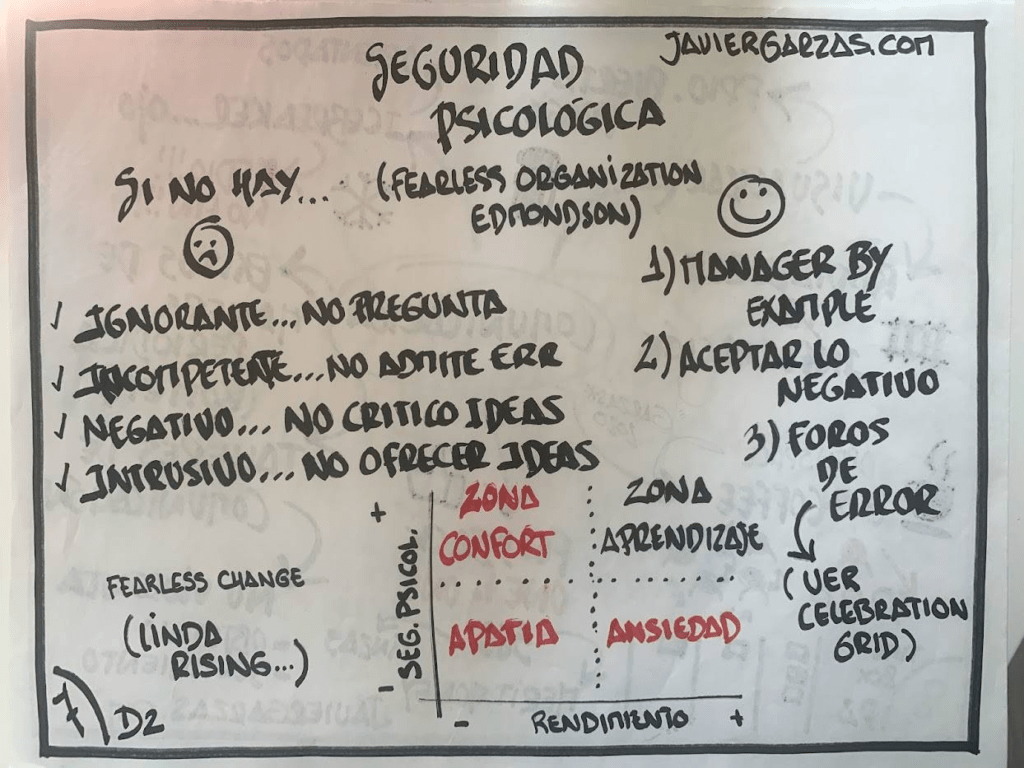 JAVIERGARZAS.COM
SEGURIDAD
PSICOLÓGICA
SI NO HAY...
(FEARLESS ORGANIZATION
EDMONDSON)
✓ IGNORANTE... NO PREGUNTA
✓ INCOMPETENTE... NO ADMITE ERR
✓ NEGATIVO... NO CRITICO IDEAS
✓ INTRUSIVO... NO OFRECER IDEAS
1) MANAGER BY
EXAMPLE
2) ACEPTAR LO
NEGATIVO
3) FOROS
DE
ERROR
(VER
CELEBRATION
GRID)
FEARLESS CHANGE
(LINDA
RISING...)
+
SEG. PSICOL.
-
ZONA
CONFORT
ZONA
APRENDIZAJE
APATIA
ANSIEDAD
- RENDIMIENTO +
7) D2